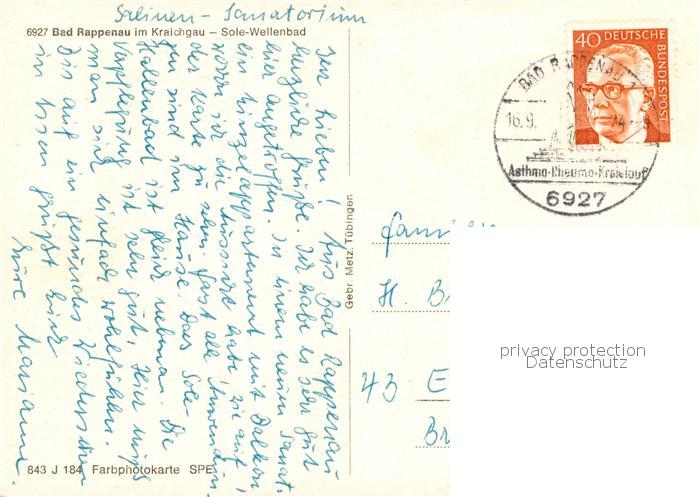 Salinen-Sanatorium
6927 Bad Rappenau im Kraichgau – Sole-Wellenbad
Ihr Lieben! Aus Bad Rappenau
herzliche Grüße. Ich habe es sehr gut
hier angetroffen. In einem neuen Sanat.
ein Einzelappartement mit Balkon,
wovon ich die Aussicht habe, wie auf
der Karte zu sehen. Fast alle Anwendun-
gen sind im Hause. Das Sole-
Hallenbad ist gleich nebenan. Die
Verpflegung ist sehr gut. Hier muss
man sich einfach wohlfühlen.
Bis auf ein gesundes Wiedersehen
in Essen grüßt Euch
Eure Marianne
843 J 184 Farbphotokarte SPE
Gebr. Metz, Tübingen
40 DEUTSCHE BUNDESPOST
BAD RAPPENAU 1
16.9.
Asthma-Rheuma-Kreislauf
6927
Familie
H. Br
43 E
Br
privacy protection
Datenschutz